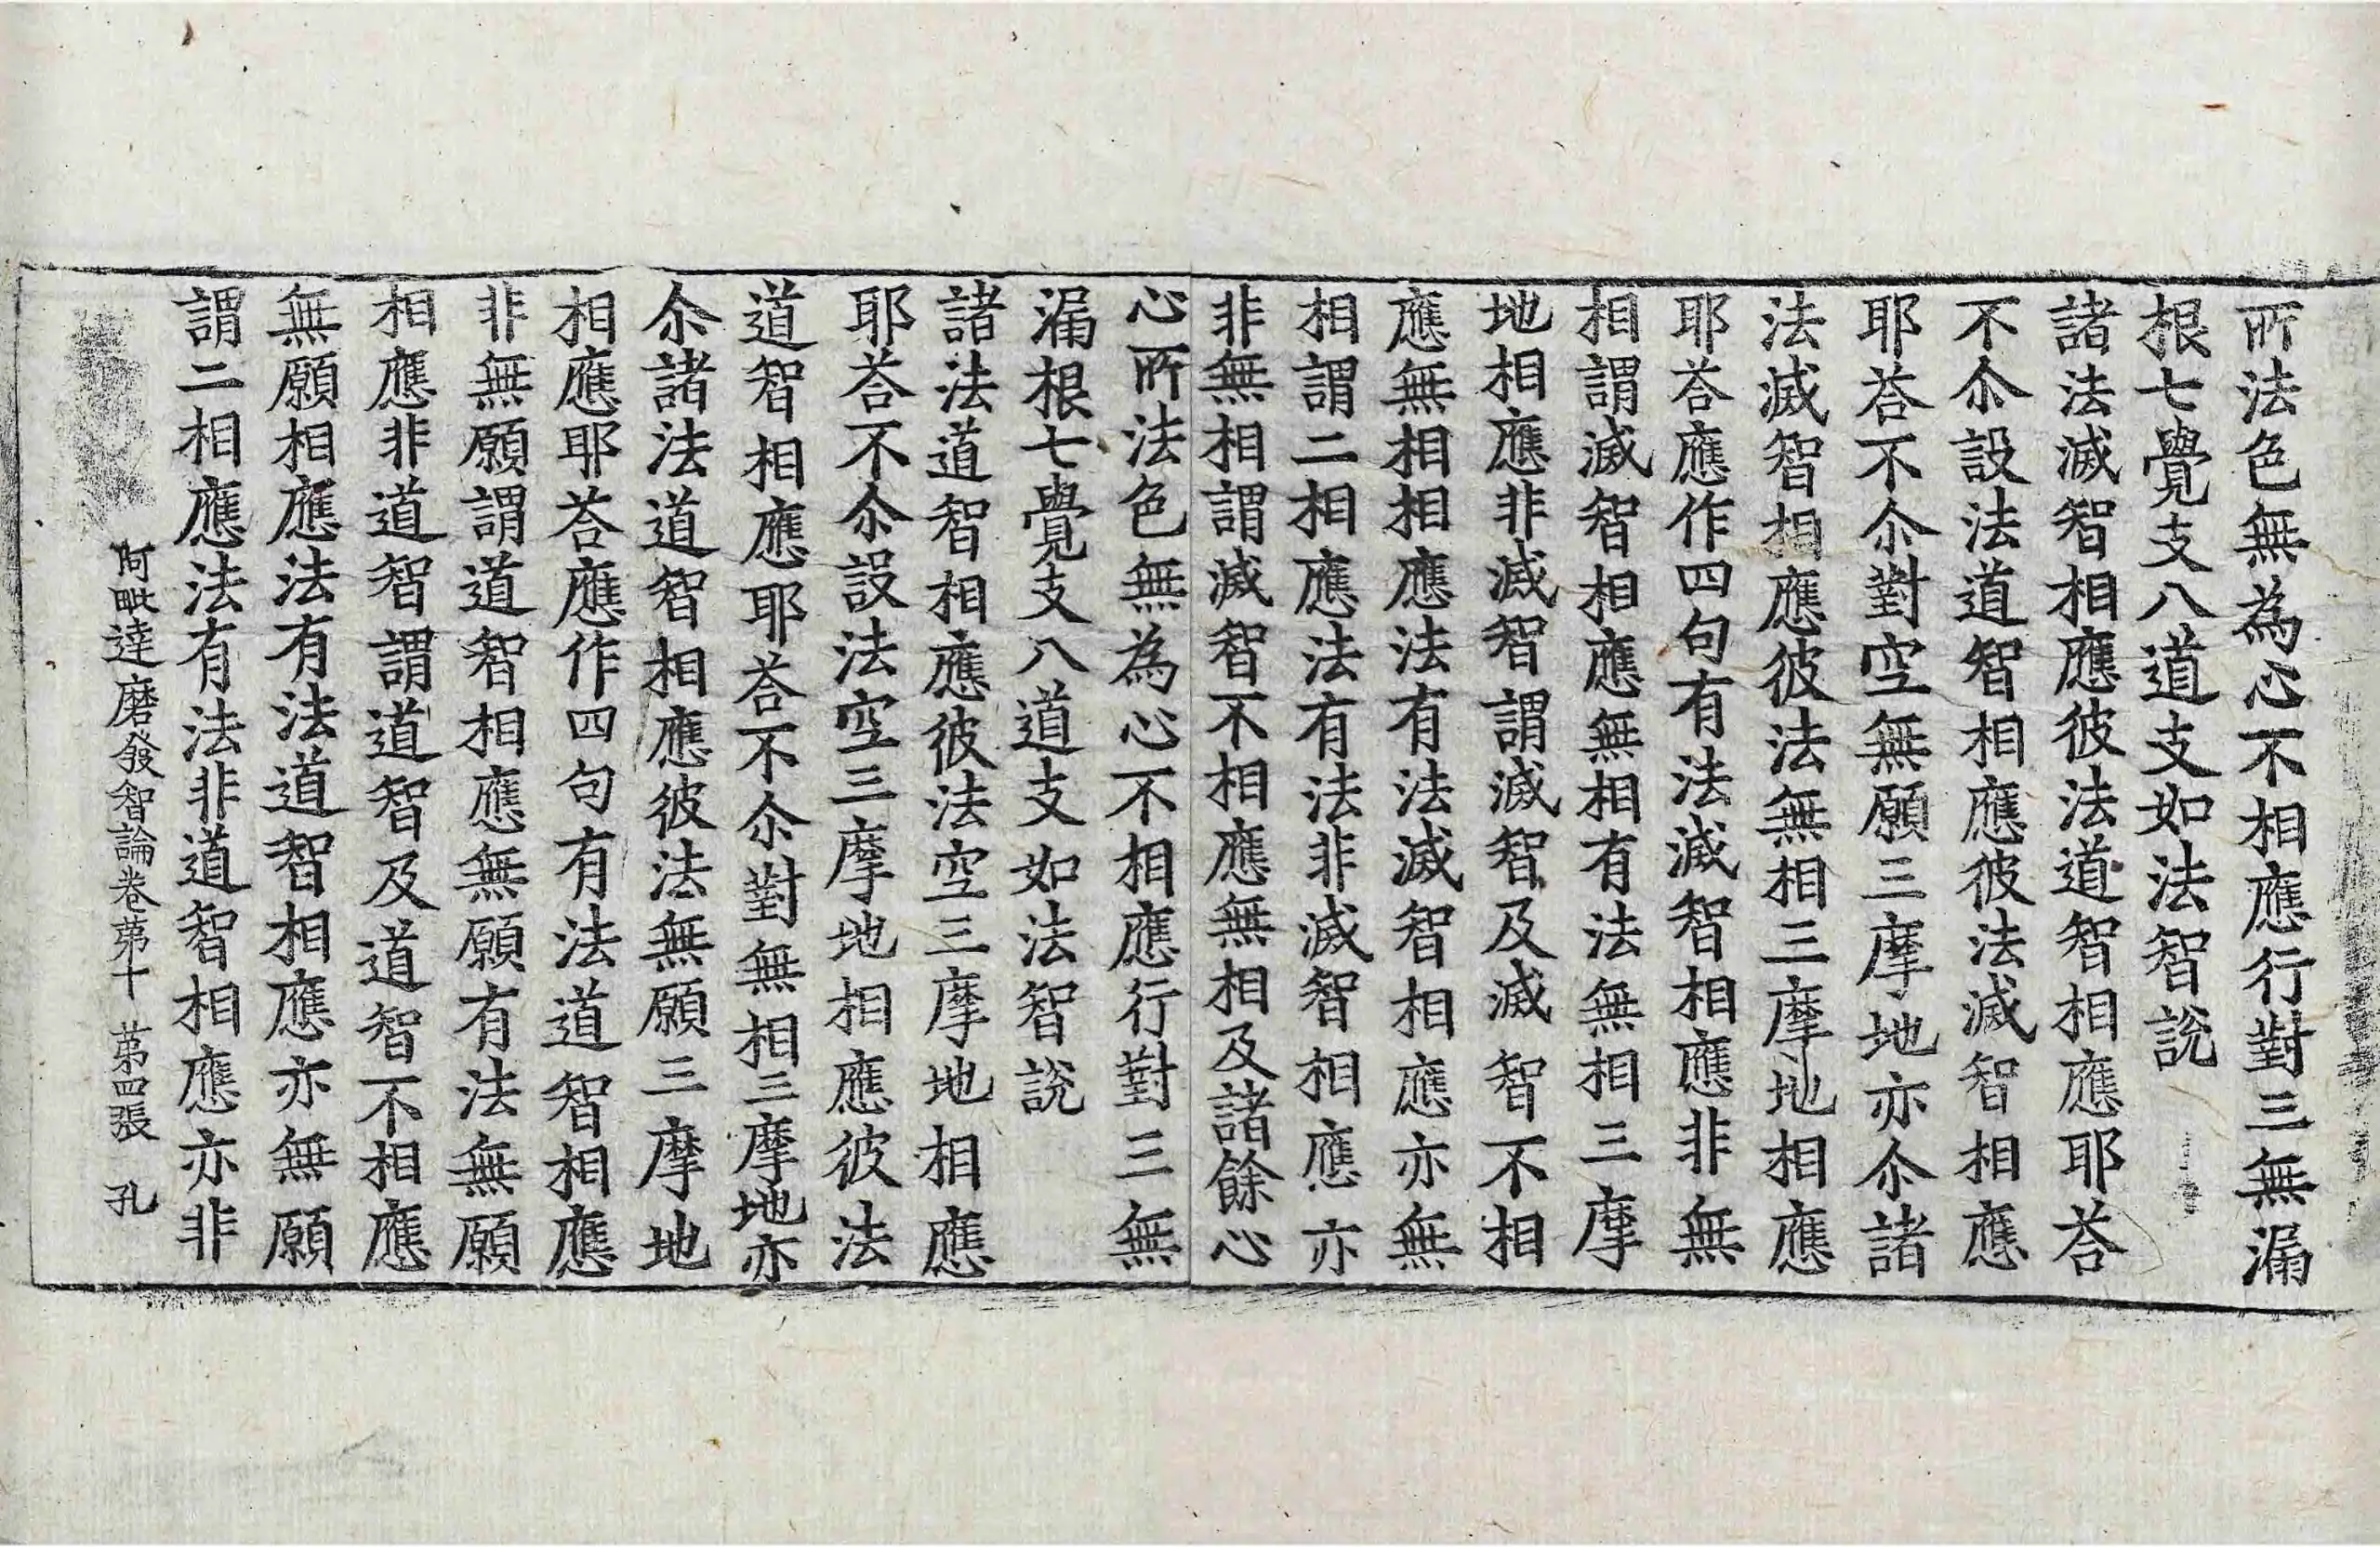 所法色無為心不相應行對三無漏
根七覺支八道支如法智說
諸法滅智相應彼法道智相應耶荅
不尒設法道智相應彼法滅智相應
耶荅不尒對空無願三摩地亦尒諸
法滅智相應彼法無相三摩地相應
耶荅應作四句有法滅智相應非無
相謂滅智相應無相有法無相三摩
地相應非滅智謂滅智及滅智不相
應無相相應法有法滅智相應亦無
相謂二相應法有法非滅智相應亦
非無相謂滅智不相應無相及諸餘心
心所法色無為心不相應行對三無
漏根七覺支八道支如法智說
諸法道智相應彼法空三摩地相應
耶荅不尒設法空三摩地相應彼法
道智相應耶荅不尒對無相三摩地亦
尒諸法道智相應彼法無願三摩地
相應耶荅應作四句有法道智相應
非無願謂道智相應無願有法無願
相應非道智謂道智及道智不相應
無願相應法有法道智相應亦無願
謂二相應法有法非道智相應亦非
阿毗達磨發智論卷苐十 苐四張 孔